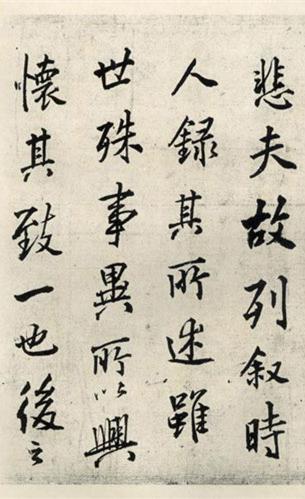 悲夫故列叙時
人録其所述雖
世殊事異所以興
懷其致一也後之